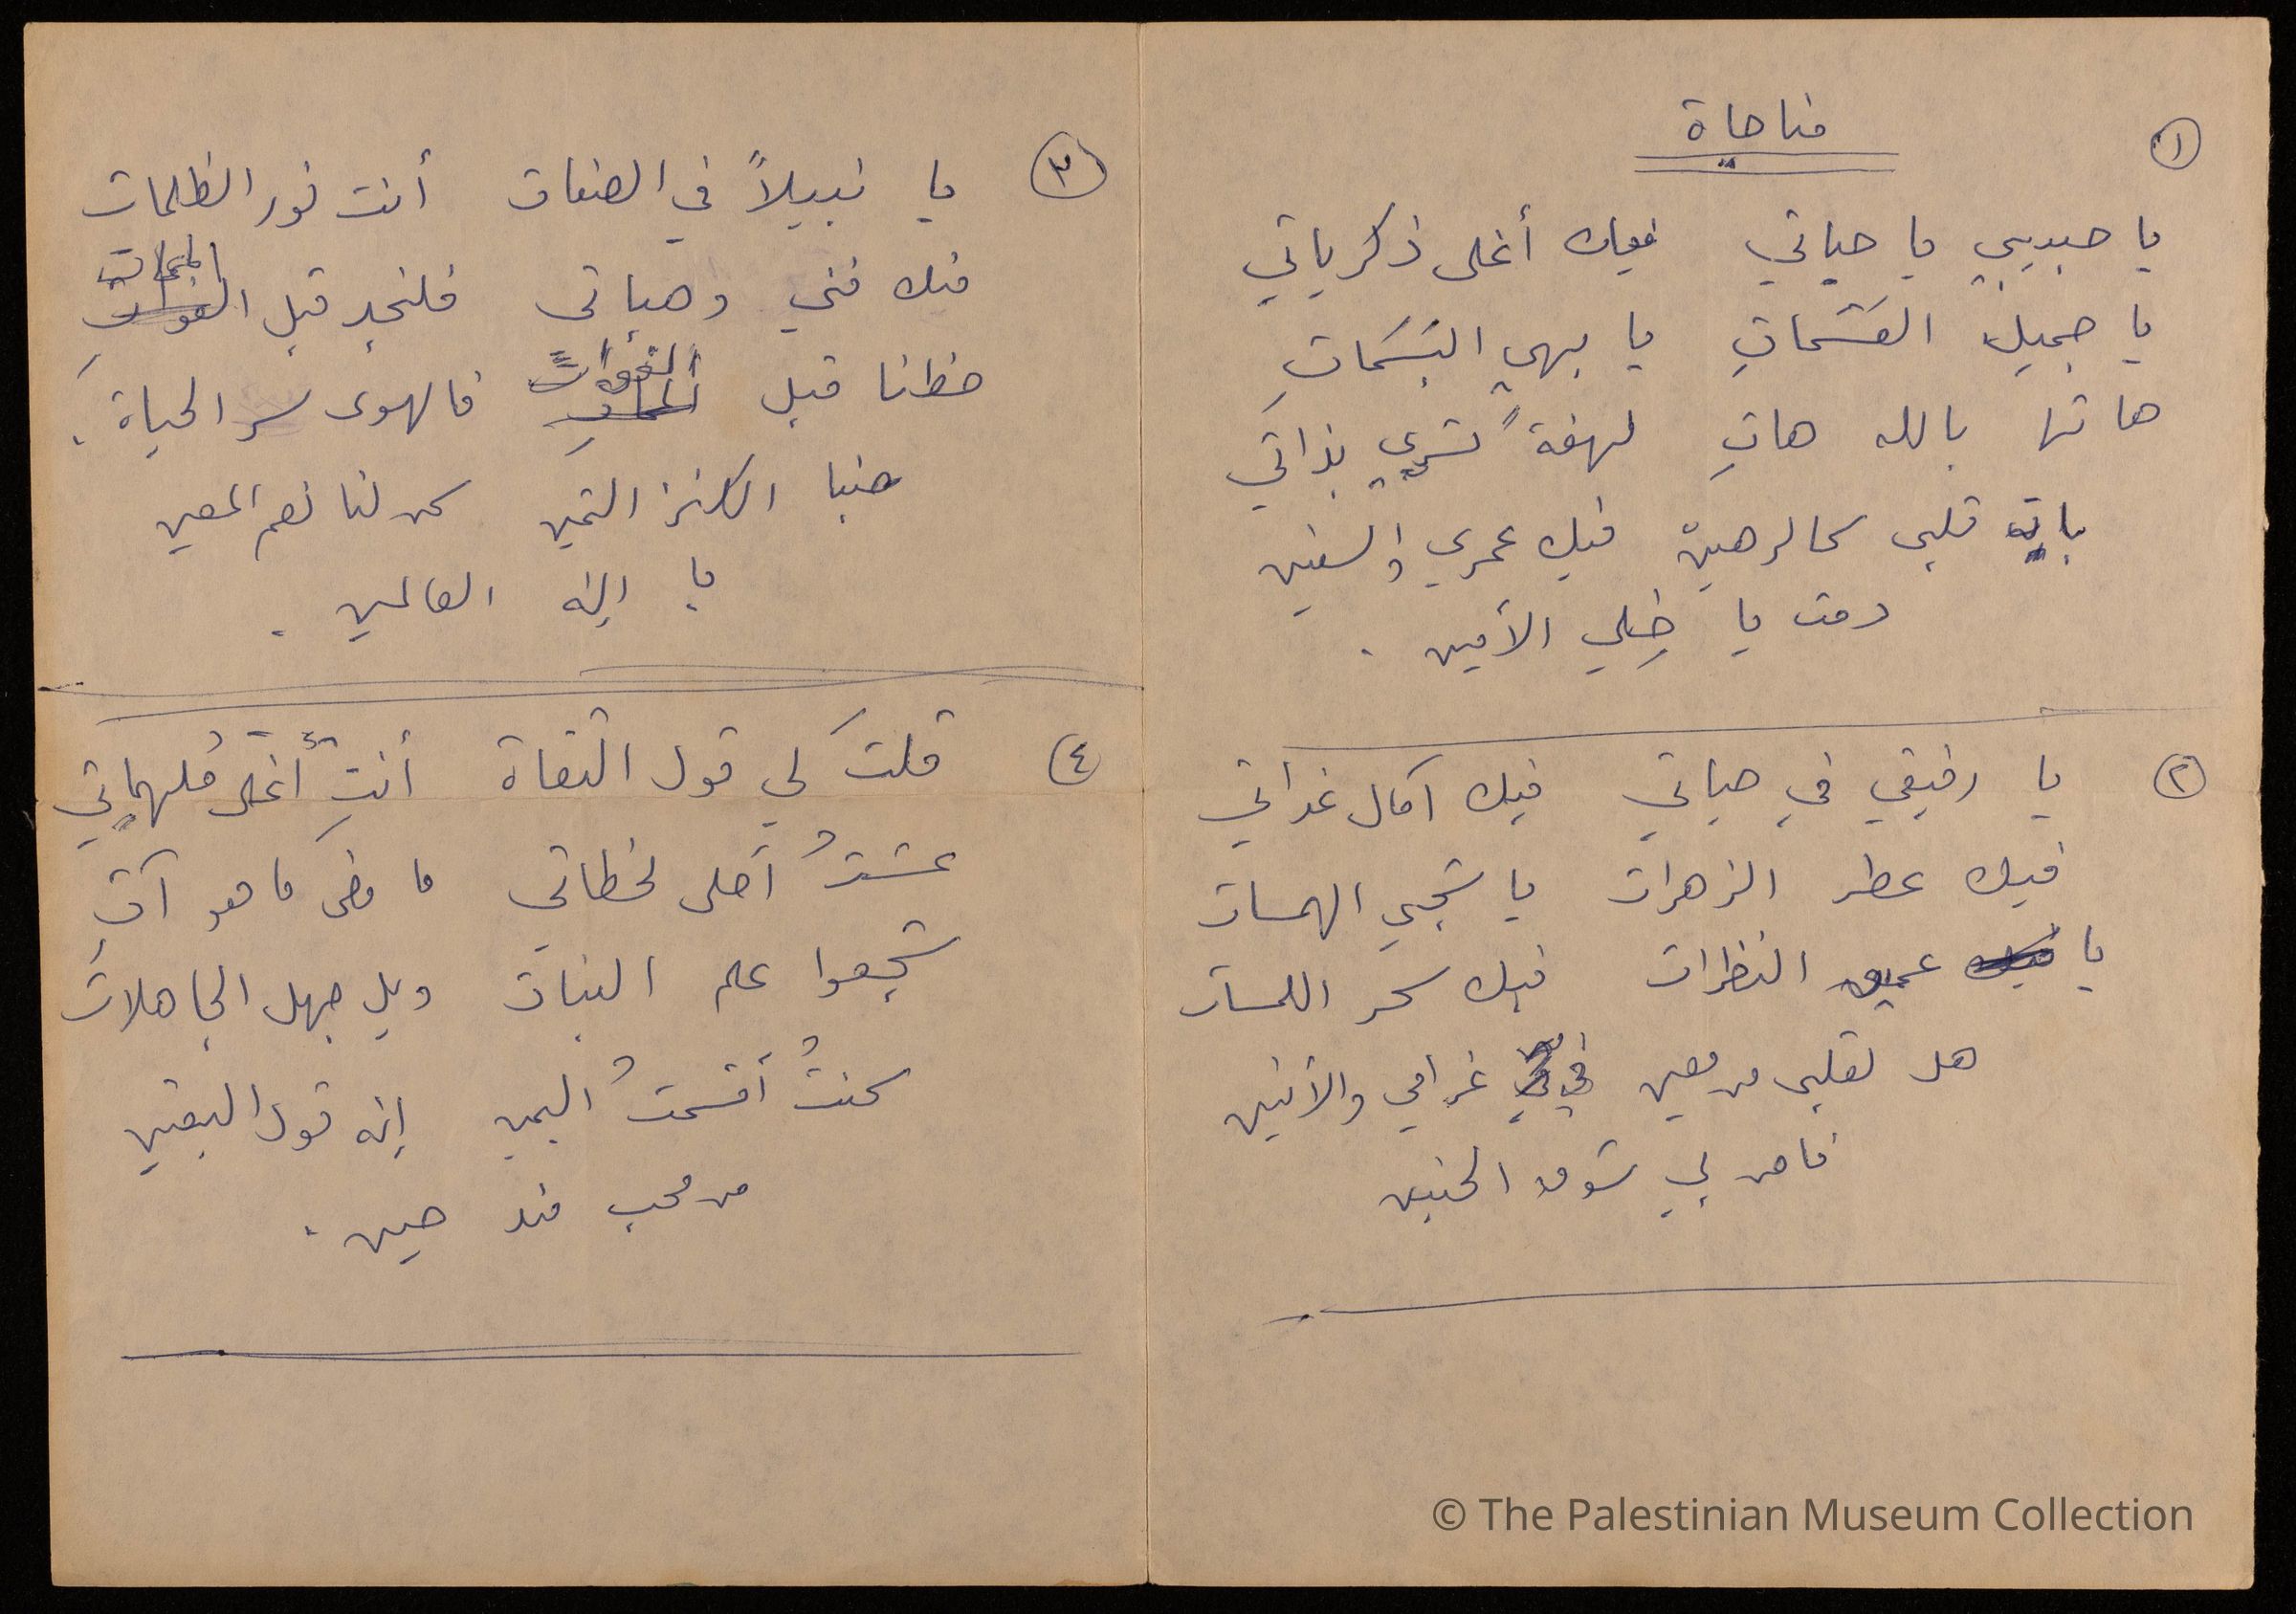 مناجاة
١
يا حبيبي يا حياتي فيك أغلى ذكرياتي
يا جميل القسَمَاتِ يا بهي البَسَمَاتِ
هاتها بالله هاتِ لهفةً تسري بذاتي
بات قلبي كالرهين فيك عمري والسنين
دمت يا خِلي الأمين .
٢
يا رفيقي في حياتي فيك آمال غداتي
فيك عطر الزهرات يا شجي الهمسات
يا عميق النظرات فيك سحر اللمسات
هل لقلبي من معين في غرامي والأنين
فاض بي شوق الحنين
٣
يا نبيلاً في الصفات أنت نور الظلمات
منك فني وهباتي فلنجد قبل الممات
حظنا قبل الفوات فالهوى سر الحياة .
حبنا الكنز الثمين كن لنا نعم المعين
يا اله العالمين .
٤
قلتَ لي قول الثقاة أنتِ أغلى مُلهماتي
عشتُ أحلى لحظاتي ما مضى ما هو آتِ
شجعوا علم البنات ويل جهل الجاهلات
كنتُ أقسمتُ اليمين إنه قول اليقين
من محب منذ حين .
© The Palestinian Museum Collection